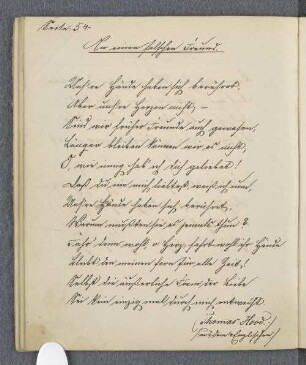 Seite 54.
An einen falschen Freund.
Unsre Hände haben sich berührt,
Aber unsre Herzen nicht; –
Sind wir früher Freunde auch gewesen,
Länger bleiben können wir es nicht,
O, wie innig hab ich dich geliebet!
Daß du mich liebtest,
Unsre Hände haben sich berührt,
Warum mußten sie es jemals thun?
Fahr denn wohl o Herz, fahrt wohl ihr Hände
Bleibt den meinen fern für alle Zeit!
Selbst die äußerliche Form der Liebe
Sei kein einzig mal durch mich entweiht
Thomas Hood.
(aus dem Englischen)